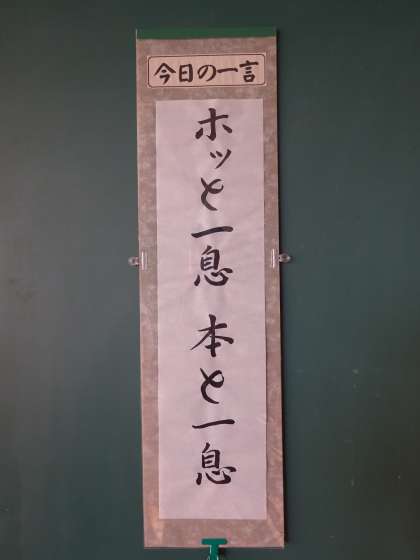 今日の一言
ホッと一息 本と一息